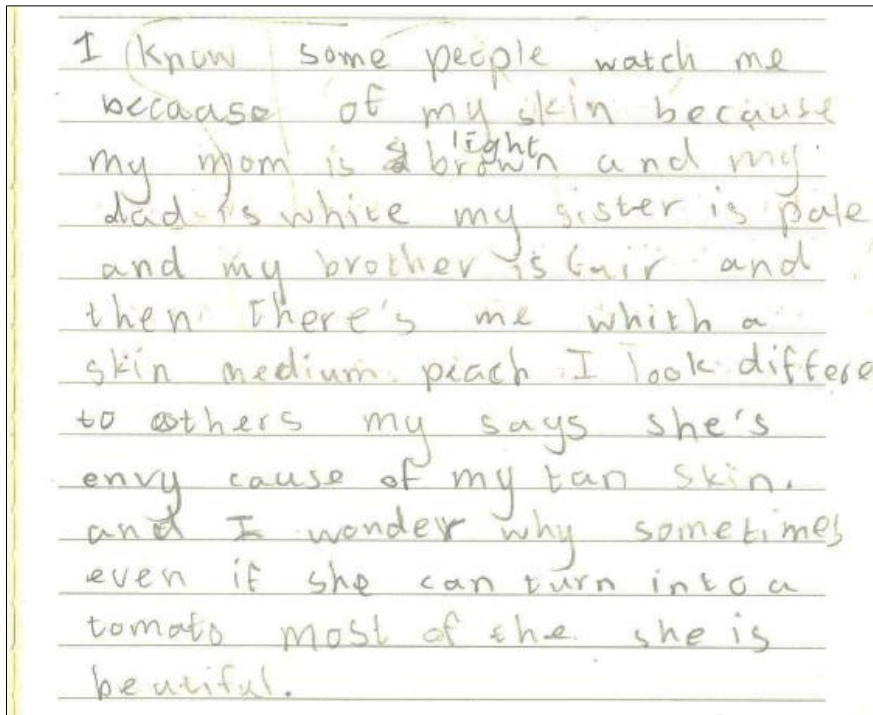 I know some people watch me
because of my skin because
my mom is light brown and my
dad is white my sister is pale
and my brother is fair and
then there's me whith a
skin medium peach I look differe
to others my says she's
envy cause of my tan skin.
and I wonder why sometimes
even if she can turn into a
tomato most of the she is
beutiful.